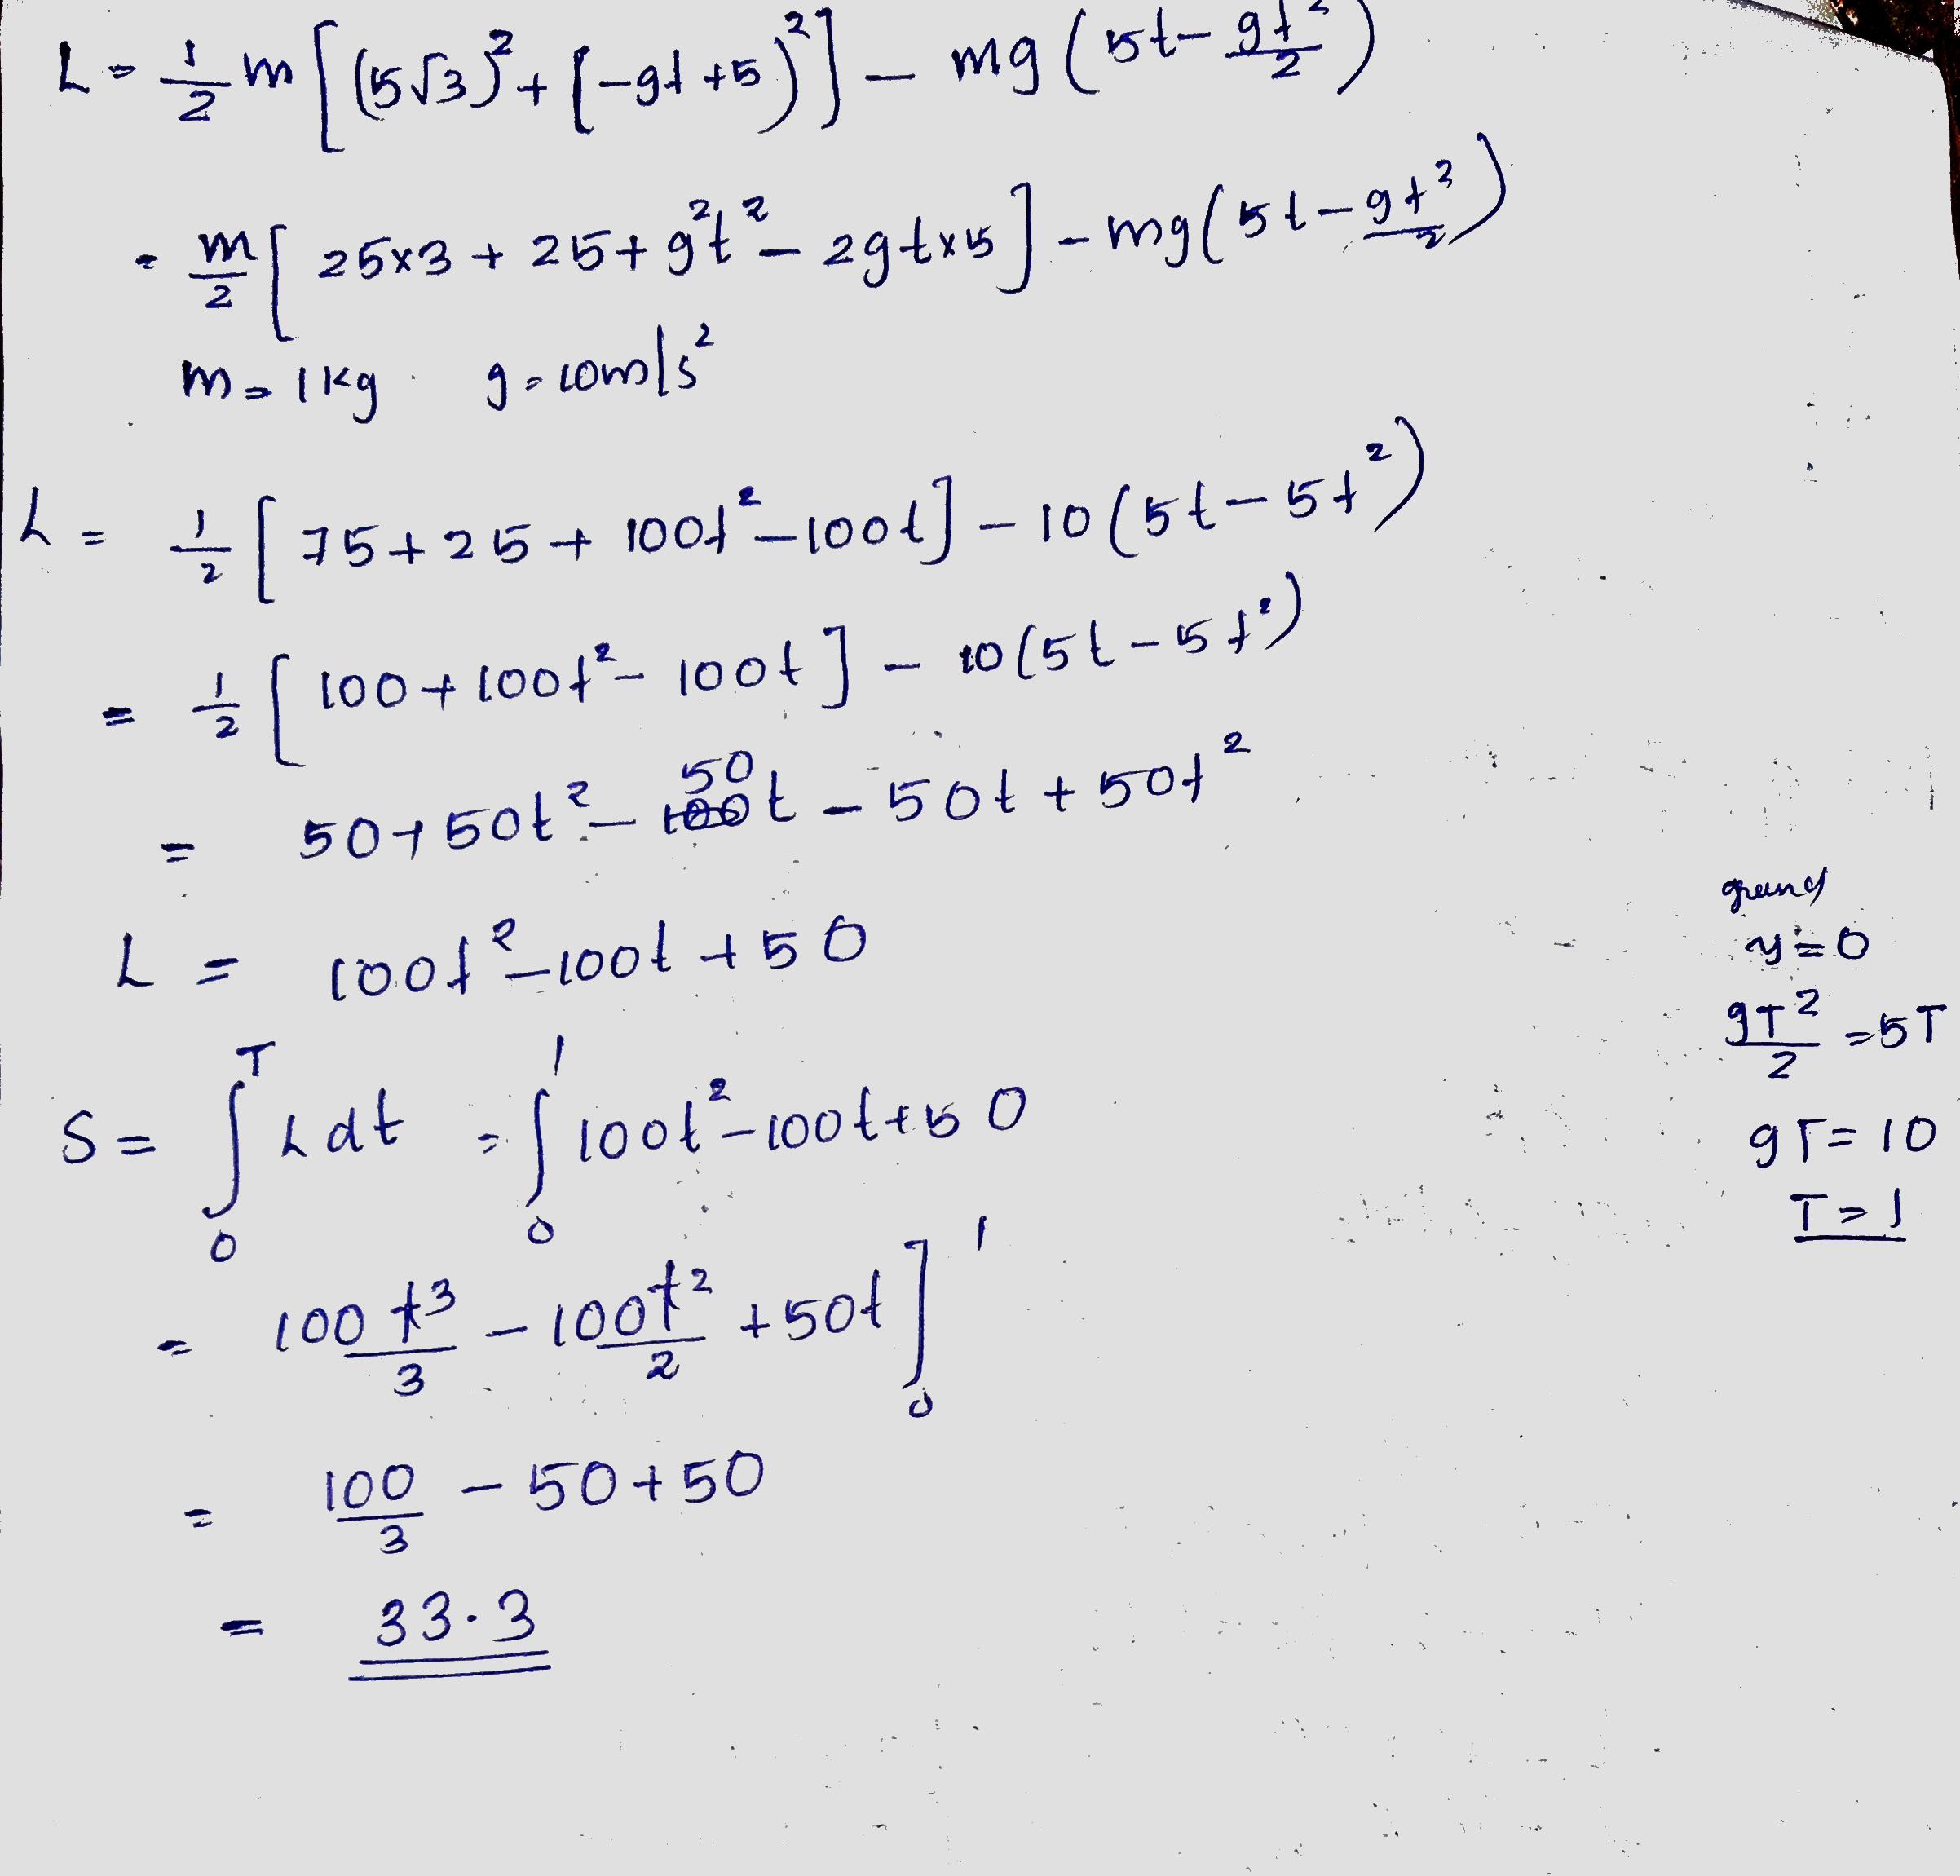 L = 1/2 m [(5√3)² + (-gt + 5)²] - mg (5t - gt²/2)
= m/2 [25×3 + 25 + g²t² - 2gt×5] - mg (5t - gt²/2)
m = 1 kg . g = 10 m/s²
L = 1/2 [75 + 25 + 100t² - 100t] - 10 (5t - 5t²)
= 1/2 [100 + 100t² - 100t] - 10 (5t - 5t²)
= 50 + 50t² - 50t - 50t + 50t²
L = 100t² - 100t + 50
S = ∫₀ᵀ L dt = ∫₀¹ 100t² - 100t + 50
= 100 t³/3 - 100t²/2 + 50t ]₀¹
= 100/3 - 50 + 50
= 33.3
y = 0
gT²/2 = 5T
gT = 10
T = 1